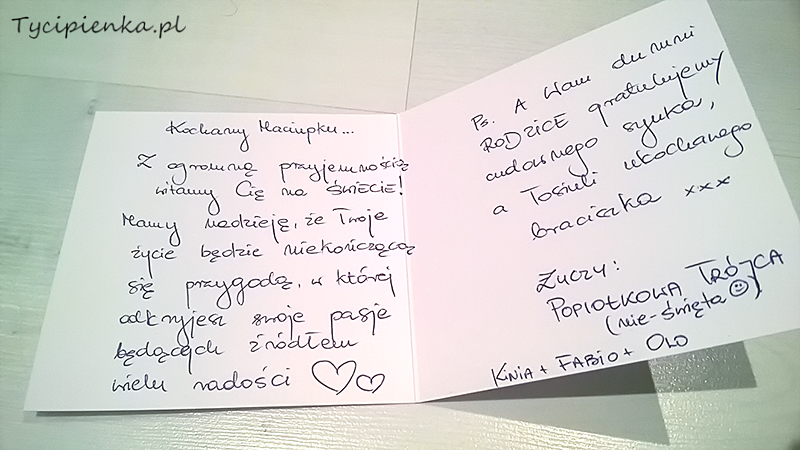 Tycipienka.pl
Kochany Maciupku...
Z ogromną przyjemnością
witamy Cię na ŚWIECIE!
Mamy nadzieję, że Twoje
życie będzie niekończącą
się przygodą, w której
odkryjesz swoje pasje
będących źródłem
wielu radości
Ps. A Wam dumni
RODZICE gratulujemy
cudownego synka,
a Tośiuli ukochanego
braciszka xxx
Życzy:
POPIOŁKOWA TRÓJCA
(nie-święta)
KINIA + FABIO + OLO